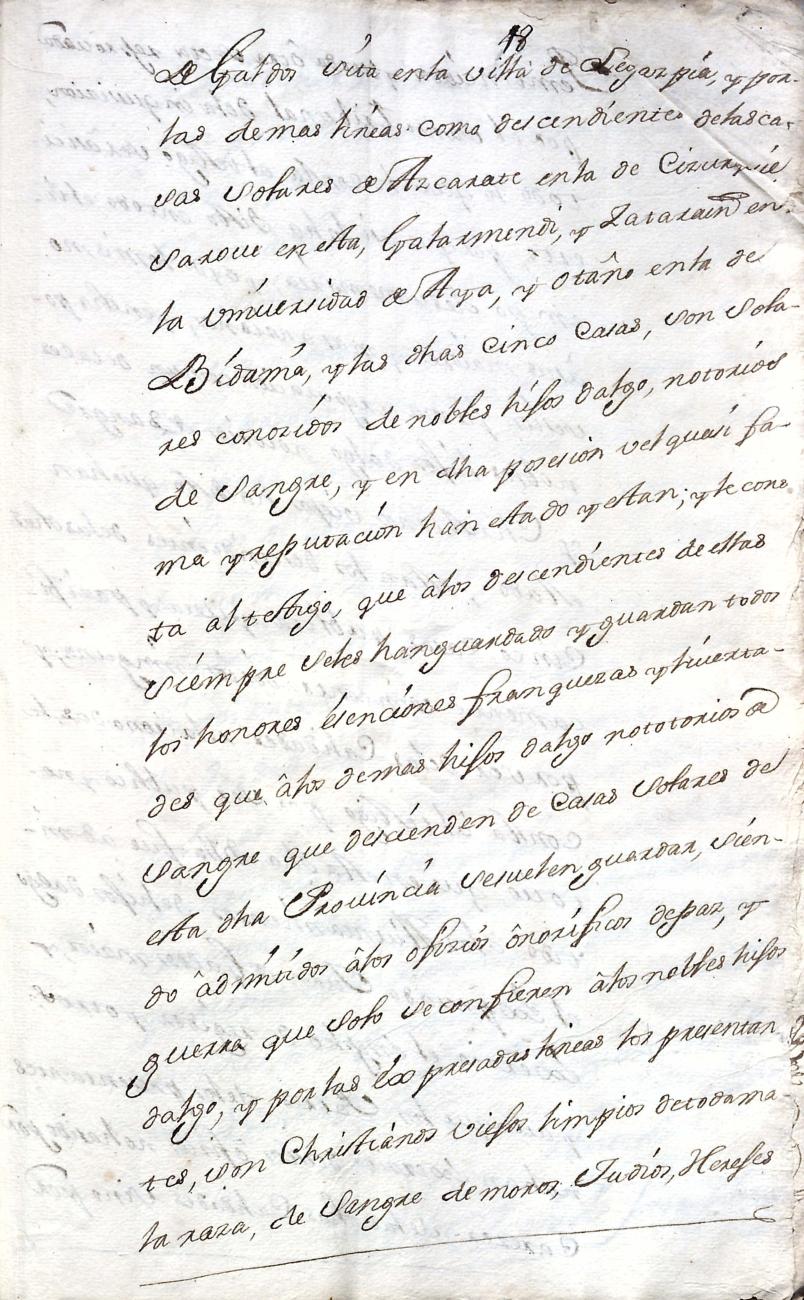 18
de Galdos sita en la villa de Legazpia, y por
las demas lineas como descendientes delas ca,
sas solares de Azcarate en la de Cizurquil
Saroue en esta, Galarmendi, y Zatarain en
la vniversidad de Aya, y Otaño en la de
Bidania, y las dhas cinco Casas, son sola-
res conozidos de nobles hijos dalgo, notorios
de Sangre, y en dha posesion vel quasi fa-
ma y reputacion han estado y estan; y le cons
ta al testigo, que âlos descendientes de ellas
siempre seles han guardado y guardan todos
los honores esenciones franquezas y liuerta-
des que âlos demas hijos dalgo nototorios de
Sangre que descienden de Casas solares de
esta dha Provincia se suelen guardar, sien-
do âdmitidos âlos ofizios ônorificos de paz, y
guerra que solo se confieren âlos nobles hijos
dalgo, y por las expresadas lineas los presentan
tes, son Christianos viejos limpios de toda ma
la raza, de Sangre de moros, Judios, Herejes